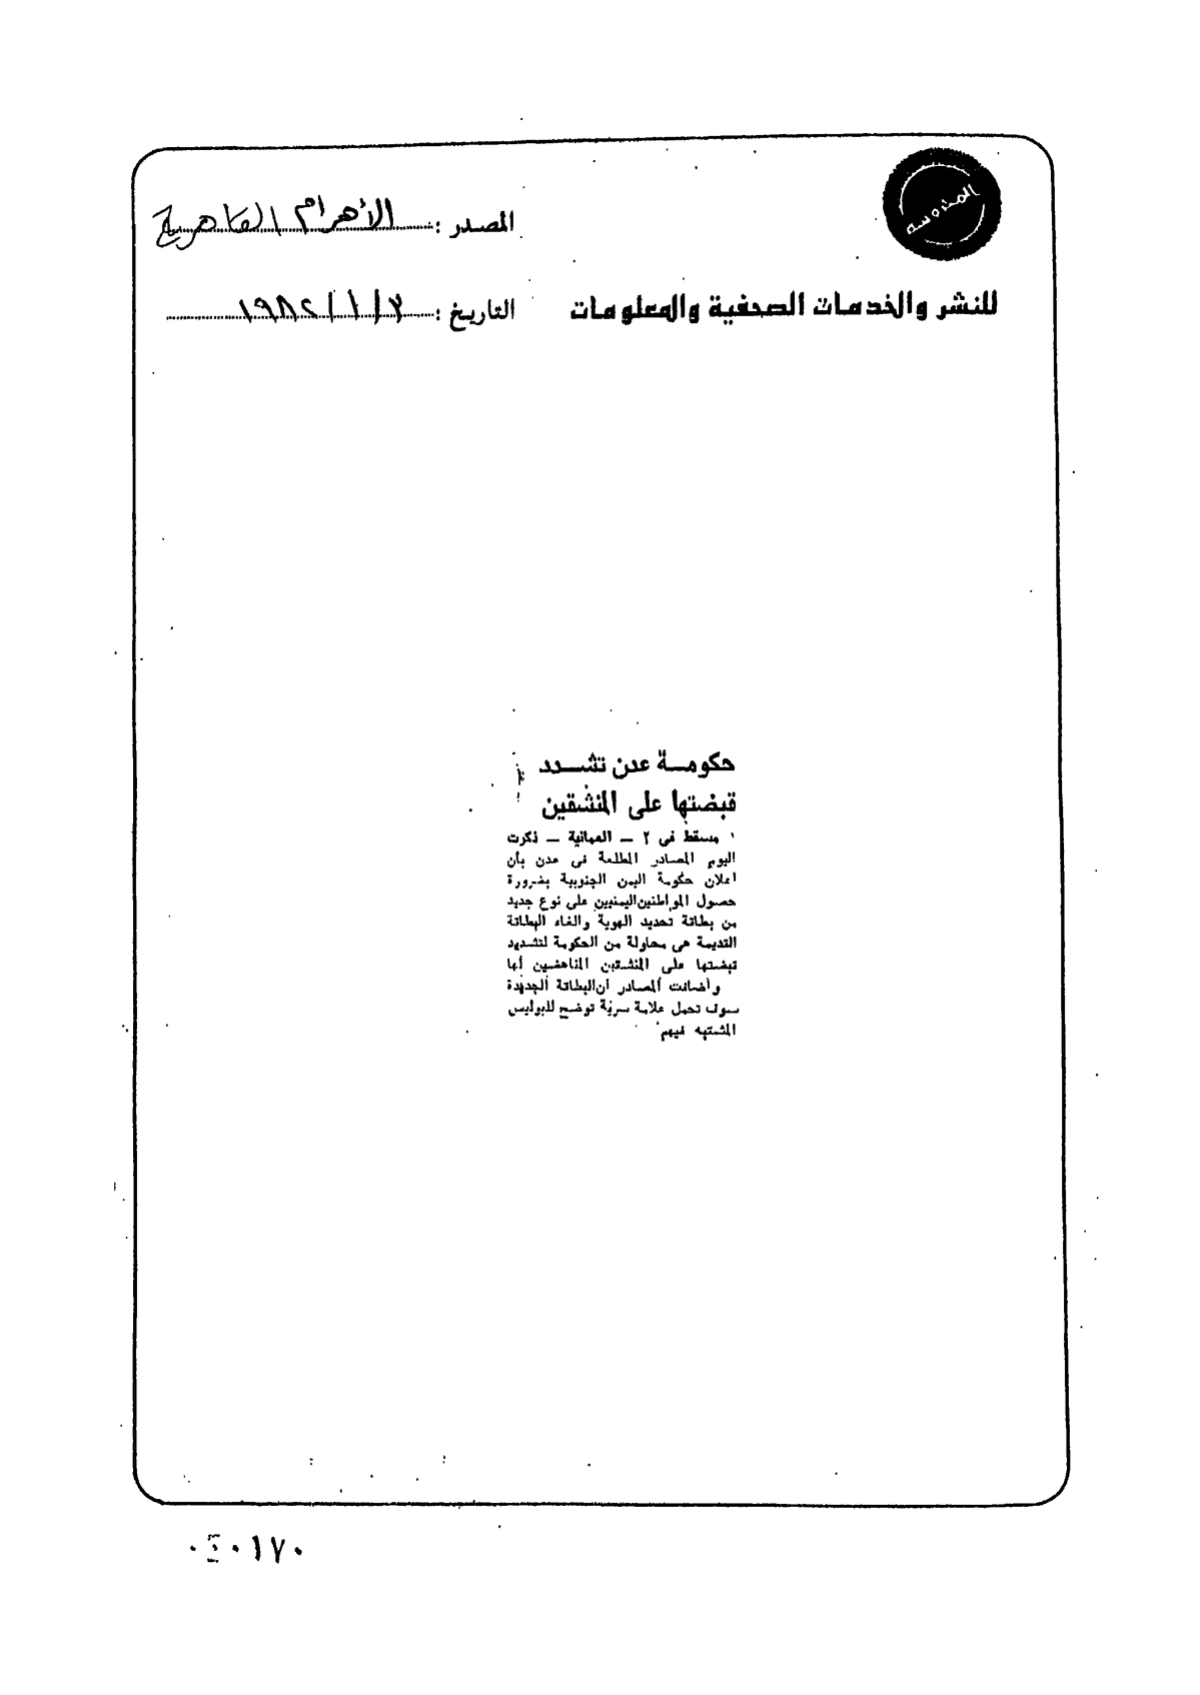 المحروسه
المصدر : الأهرام القاهرية
للنشر والخدمات الصحفية والمعلومات
التاريخ : ٣ / ١ / ١٩٨٢
حكومـــة عدن تشـــدد
قبضتها على المنشقين
مسقط فى ٢ ــ العمانية ــ ذكرت
اليوم المصادر المطلعة فى عدن بأن
اعلان حكومة اليمن الجنوبية بضرورة
حصول المواطنين اليمنيين على نوع جديد
من بطاقة تحديد الهوية والغاء البطاقة
القديمة هى محاولة من الحكومة لتشديد
قبضتها على المنشقين المناهضين لها
وأضافت المصادر أن البطاقة الجديدة
سوف تحمل علامة سرية توضح للبوليس
المشتبه فيهم